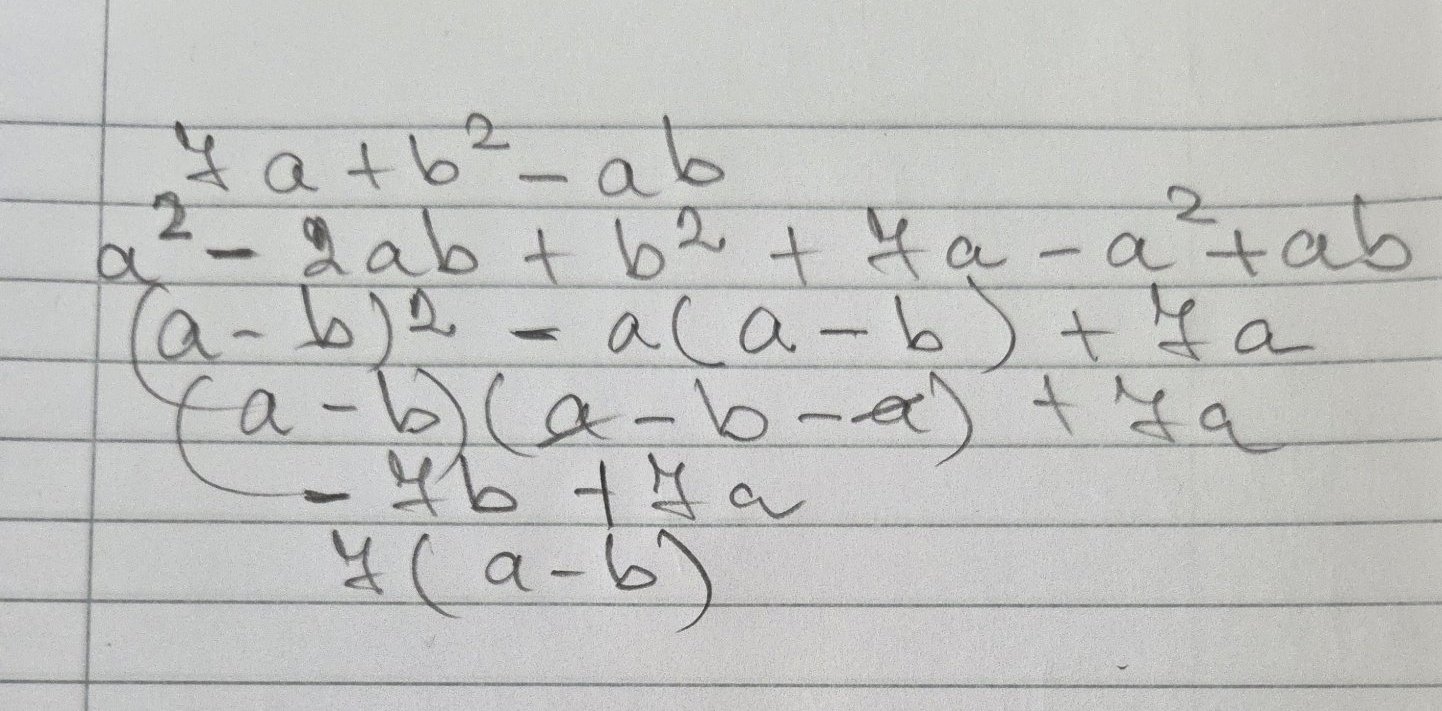 7a + b² - ab
a² - 2ab + b² + 7a - a² + ab
(a - b)² - a(a - b) + 7a
(a - b)(a - b - a) + 7a
- 7b + 7a
7(a - b)